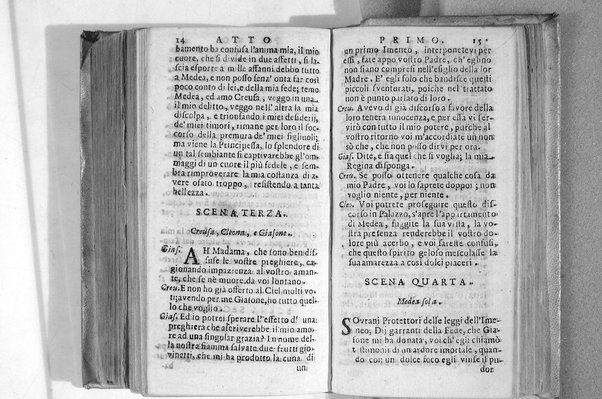 14 ATTO
bamento ha confusa l'anima mia, il mio
cuore, che si divide in due affetti, si la-
scia esporre a mille affanni. debbo tutto
a Medea, e non posso senz' onta far così
poco conto di lei, e della mia fede; temo
Medea, ed amo Creusa, veggo in una
il mio delitto, veggo nell' altra la mia
discolpa, e trionfando i miei desiderij,
de' miei timori, rimane per loro il soc-
corso della premura de' miei figliuoli;
ma viene la Principessa, lo splendore di
un tal sembiante si captivarebbe gl'om-
maggi di un cuore il più fedele, e sem-
bra rimproverare la mia costanza di a-
vere osato troppo, resistendo a tanta
bellezza.
SCENA TERZA.
Creusa, Cleona, e Giasone.
Gias. AH Madama, che sono ben dif-
fuse le vostre preghiere, ca-
gionando impazienza al vostro aman-
te, che se nè muore, da voi lontano.
Creu. E non ho già offerto al Ciel molti vo-
ti, avendo per me Giasone, ho tutto quel-
lo che voglio.
Gias. Ed io potrei sperare l'effetto d' una
preghiera che ascriverebbe il mio amo-
re ad una singolar grazia? In nome del-
la nostra fiamma salvate due frutti gio-
vinetti, che mi ha prodotto la cuna di
un
PRIMO. 15
un primo Imeneo, interponetevi per
essi, fate appo vostro Padre, ch' eglino
non siano compresi nell'esiglio della lor
Madre. E' egli solo che bandisce questi
piccoli sventurati, poiche nel trattato
non è punto parlato di loro.
Creu. Avevo di già discorso a favore della
loro tenera innocenza, e per essa vi ser-
virò con tutto il mio potere, purche al
vostro ritorno voi m'accordiate un non
sò che, che non posso dirvi per ora.
Gias. Dite, e sia quel che si voglia; la mia
Regina disponga.
Creu. Se posso ottenere qualche cosa da
mio Padre, voi lo saprete doppoi; non
voglio niente, per niente.
Cleo. Voi potrete proseguire questo di-
scorso in Palazzo, s'apre l'appartamento
di Medea, fuggite la sua vista, la vo-
stra presenza renderebbe il vostro do-
lore più acerbo, e voi sareste confusi,
che questo spirito geloso mescolasse la
sua amarezza a così dolci piaceri.
SCENA QUARTA.
Medea sola.
SOvrani Protettori delle leggi dell'Ime-
neo; Dij garranti della Fede, che Gia-
sone mi ha donata, voi ch'egli chiamò
testimonij di un ardore immortale, quan-
do con un dolce foco egli vinse il pu-
dor